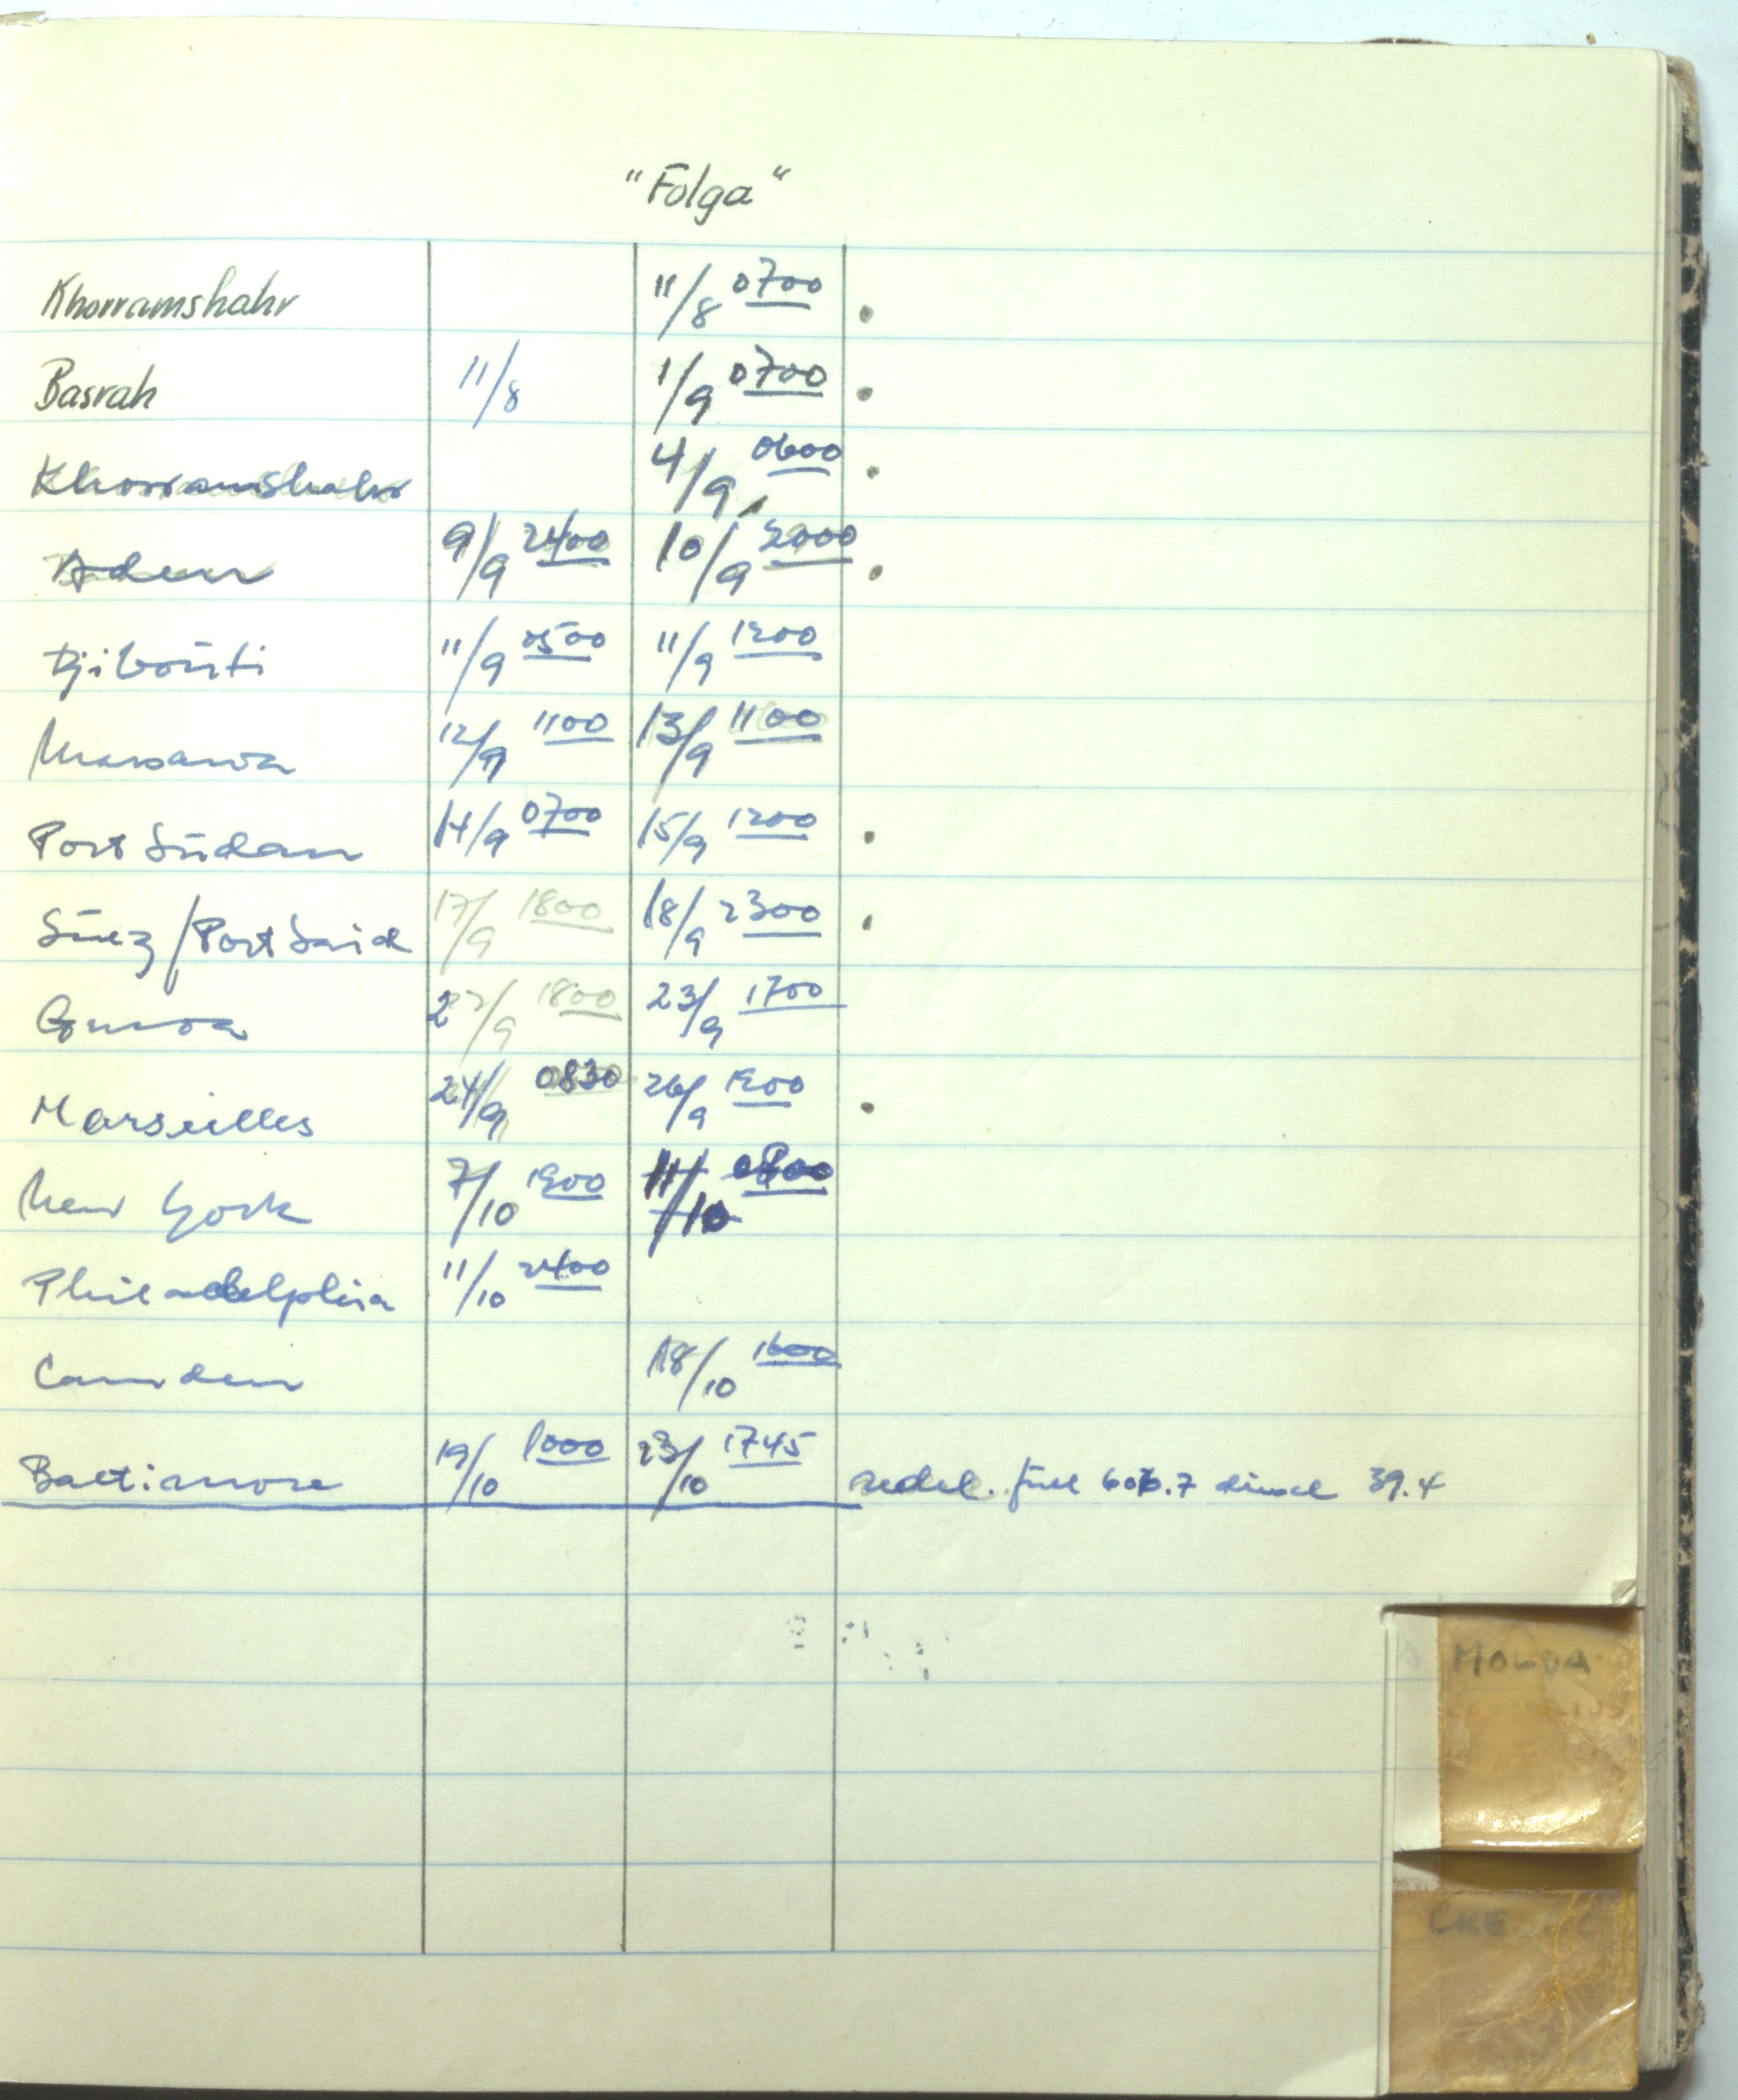 "Folga"
Khorramshahr 11/8 0700
Basrah 11/8 1/9 0700
Khorramshahr 4/9 0600
Aden 9/9 2400 10/9 2000
Djibouti 11/9 0500 11/9 1200
Massawa 12/9 1100 13/9 1100
Port Sudan 14/9 0700 15/9 1200
Suez/Port Said 17/9 1800 18/9 2300
Genoa 22/9 1800 23/9 1700
Marseilles 24/9 0830 26/9 1200
New York 7/10 1200 11/10
Philadelphia 11/10 2400
Camden 18/10 1600
Baltimore 19/10 1000 23/10 1745 redel. fuel 606.7 diesel 39.4
MOLDA